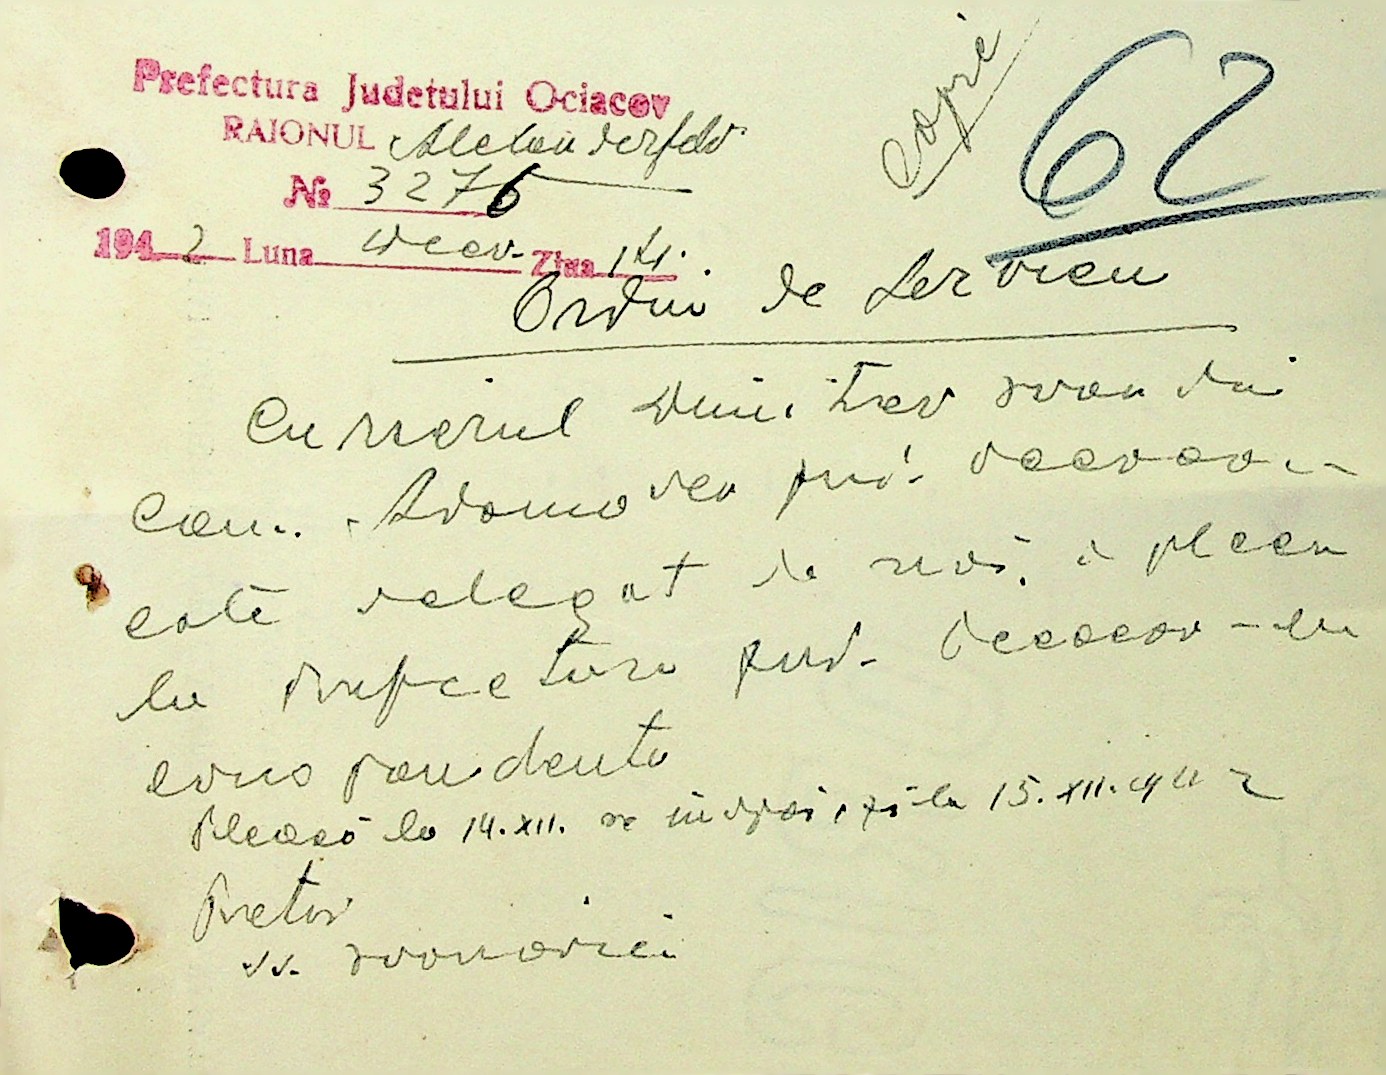 Copie
62
Prefectura Judetului Ociacov
RAIONUL Alexanderfeld
№ 3276
1942 Luna Decv. Ziua 14.
Ordin de Serviciu
Curierul Dimitrev Ivan din
com. Adamovca jud. Oceacov
este delegat de noi, a pleca
la prefectura jud. Oceacov - cu
corespondenta
Pleacă la 14.XII. se înapoiază la 15.XII.1942
Pretor
ss. Ivanovici